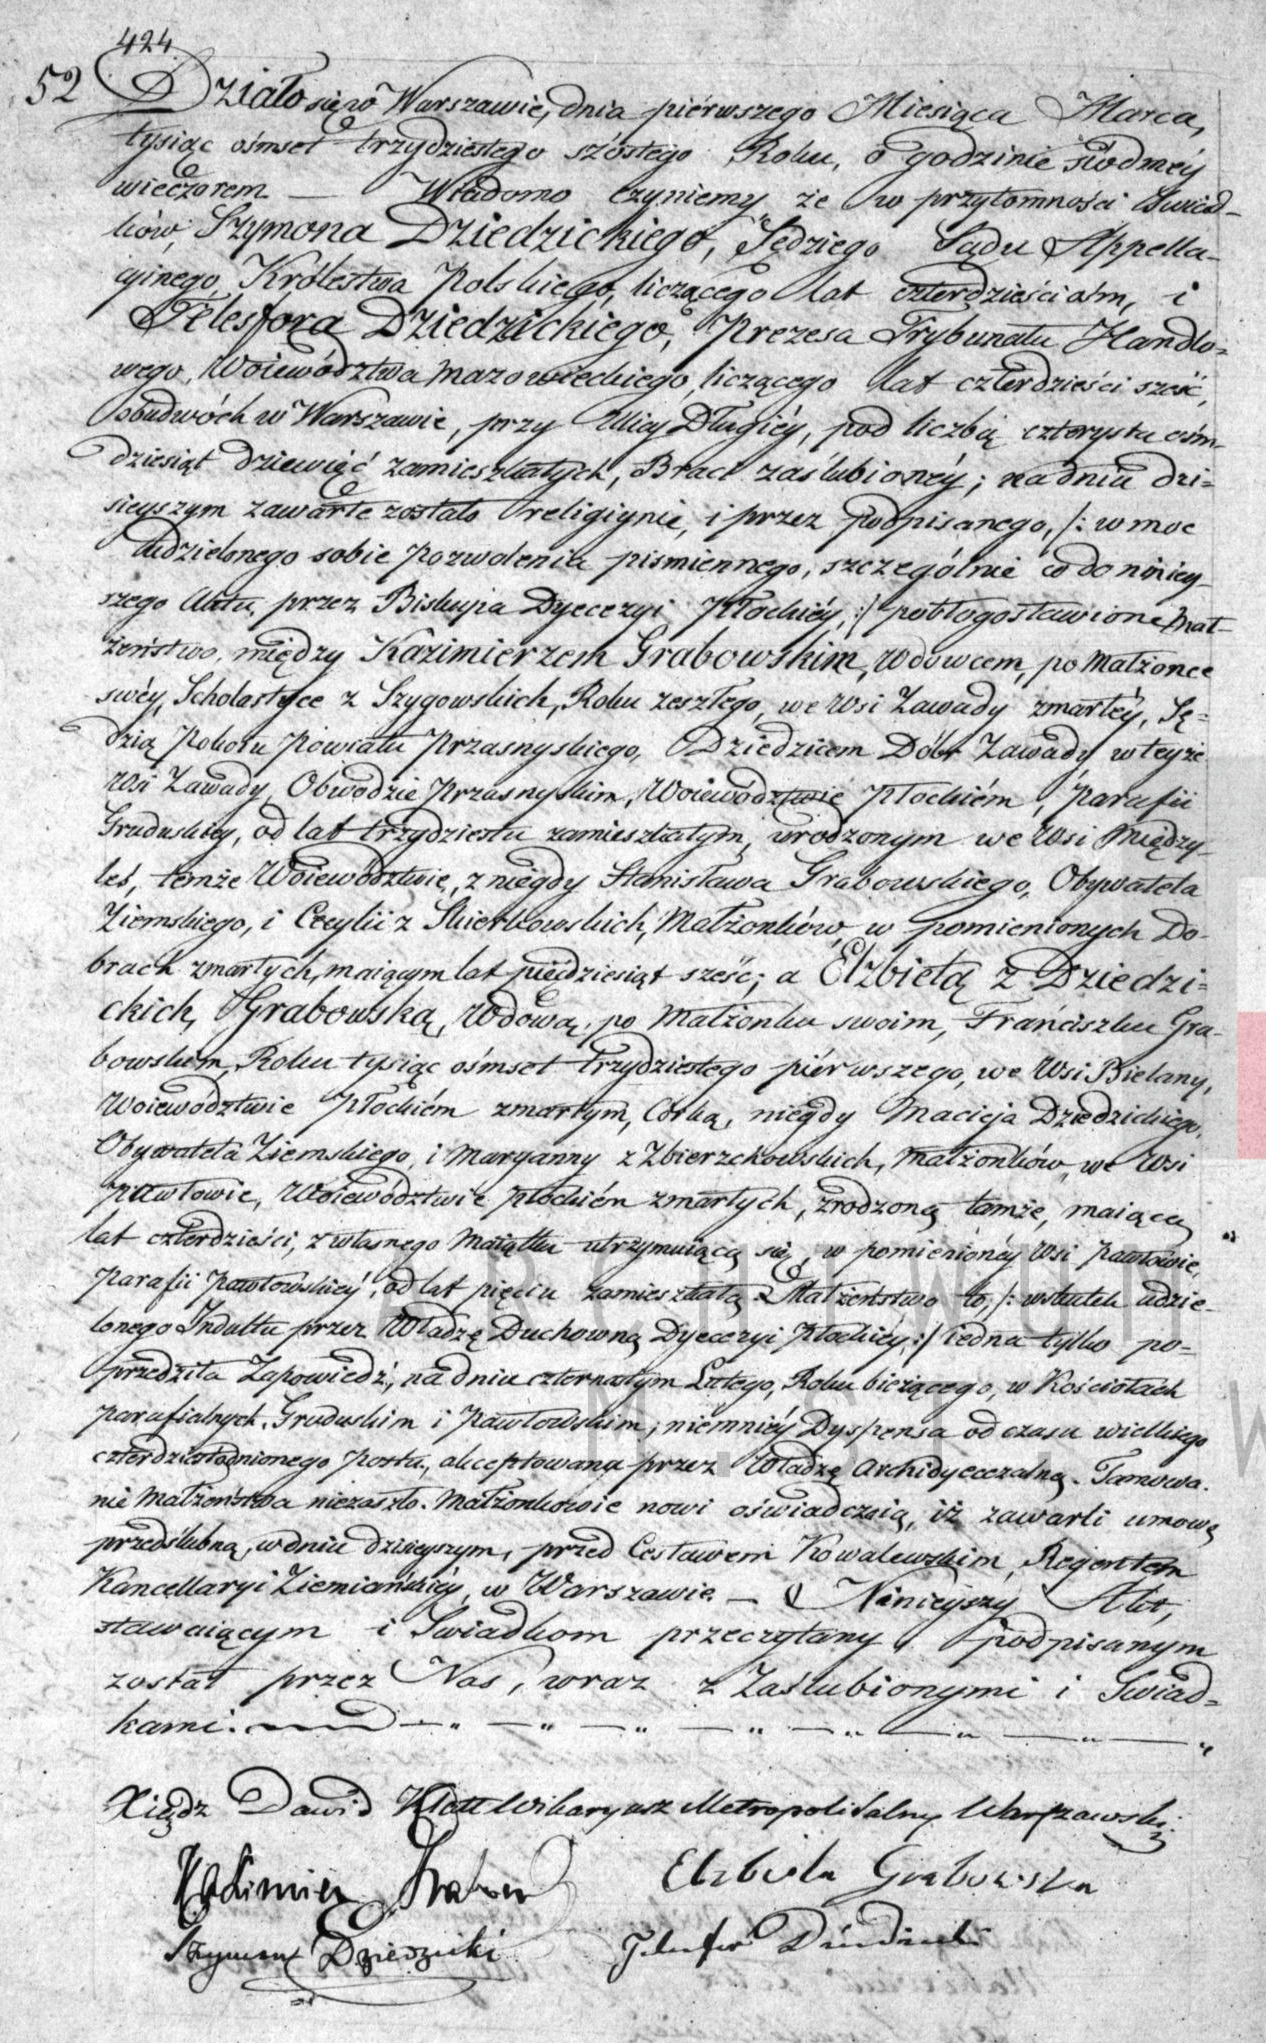 424
52 Działo się w Warszawie, dnia piérwszego Miesiąca Marca,
tysiąc ośmset trzydziestego szóstego Roku, o godzinie siodméy
wieczorem — Wiadomo czyniemy że w przytomności Swiad-
ków, Szymona Dziedzickiego, Sędziego Sądu Appella-
cyinego Królestwa Polskiego, liczącego lat czterdzieści ośm, i
Telesfora Dziedzickiego, Prezesa Trybunału Handlo=
wego, Woiewództwa Mazowieckiego, liczącego lat czterdzieści sześć,
obudwóch w Warszawie, przy Ulicy Długiéy, pod liczbą czterysta ośm-
dziesiąt dziewięć zamieszkałych, Braci zaślubionéy; na dniu dzi=
sieyszym zawarte zostało religiynie, i przez podpisanego, /: w moc
udzielonego sobie pozwolenia pismiennego, szczególnie co do niniey-
szego Aktu, przez Biskupa Dyecezyi Płockiéy, :/ pobłogosławione Mał-
żeństwo, między Kazimierzem Grabowskim, Wdowcem, po Małżonce
swéy, Scholastyce z Szygowskich, Roku zeszłego, we Wsi Zawady zmarłéy, Sę=
dzią Pokoiu Powiatu Przasnyskiego, Dziedzicem Dóbr Zawady w teyże
Wsi Zawady, Obwodzie Przasnyskim, Woiewództwie Płockiém, Parafii
Gruduskiey, od lat trzydziestu zamieszkałym, urodzonym we Wsi Między-
leś, temże Woiewództwie, z niegdy Stanisława Grabowskiego, Obywatela
Ziemskiego, i Cecylii z Skierkowskich, Małżonków, w pomienionych Do-
brach zmarłych, maiącym lat pięćdziesiąt sześć; a Elżbietą z Dziedzi=
ckich, Grabowską, Wdową, po Małżonku swoim, Franciszku Gra-
bowskim, Roku tysiąc ośmset trzydziestego piérwszego, we Wsi Bielany,
Woiewództwie Płockiém zmarłym, Córką, niegdy Macieja Dziedzickiego,
Obywatela Ziemskiego, i Maryanny z Zbierzchowskich, Małżonków, we Wsi
Pawłowie, Woiewództwie Płockiém zmarłych, zrodzoną tamże, maiącą
lat czterdzieści, z własnego Maiątku utrzymuiącą się, w pomienionéy Wsi Pawłowie,
Parafii Pawłowskiéy, od lat pięciu zamieszkałą. Małżeństwo to, /: wskutek udzie-
lonego Indultu przez Władzę Duchowną Dyecezyi Płockiéy, :/ iedna tylko po=
przedziła Zapowiedź, na dniu czternastym Lutego, Roku bieżącego, w Kościołach
parafialnych, Gruduskim i Pawłowskim; niemniéy Dyspensa od czasu wielkiego
czterdziestodniowego Postu, akceptowana przez Władzę Archidyecezalną. Tamowa-
nie Małżeństwa niezaszło. Małżonkowie nowi oświadczaią, iż zawarli umowę
przedślubną w dniu dzisieyszym, przed Cesławem Kowalewskim, Rejentem
Kancellaryi Ziemiańskiéy, w Warszawie. — Ninieyszy Akt,
stawaiącym i Swiadkom przeczytany, podpisanym
został przez Nas, wraz z Zaślubionymi i Swiad=
kami.
Xiądz Dawid Wikaryusz Metropolitalny Warszawski
Kazimierz Grabowski Elzbieta Grabowska
Szymon Dziedzicki Telesfor Dziedzicki
ARCHIWUM
M. ST. W